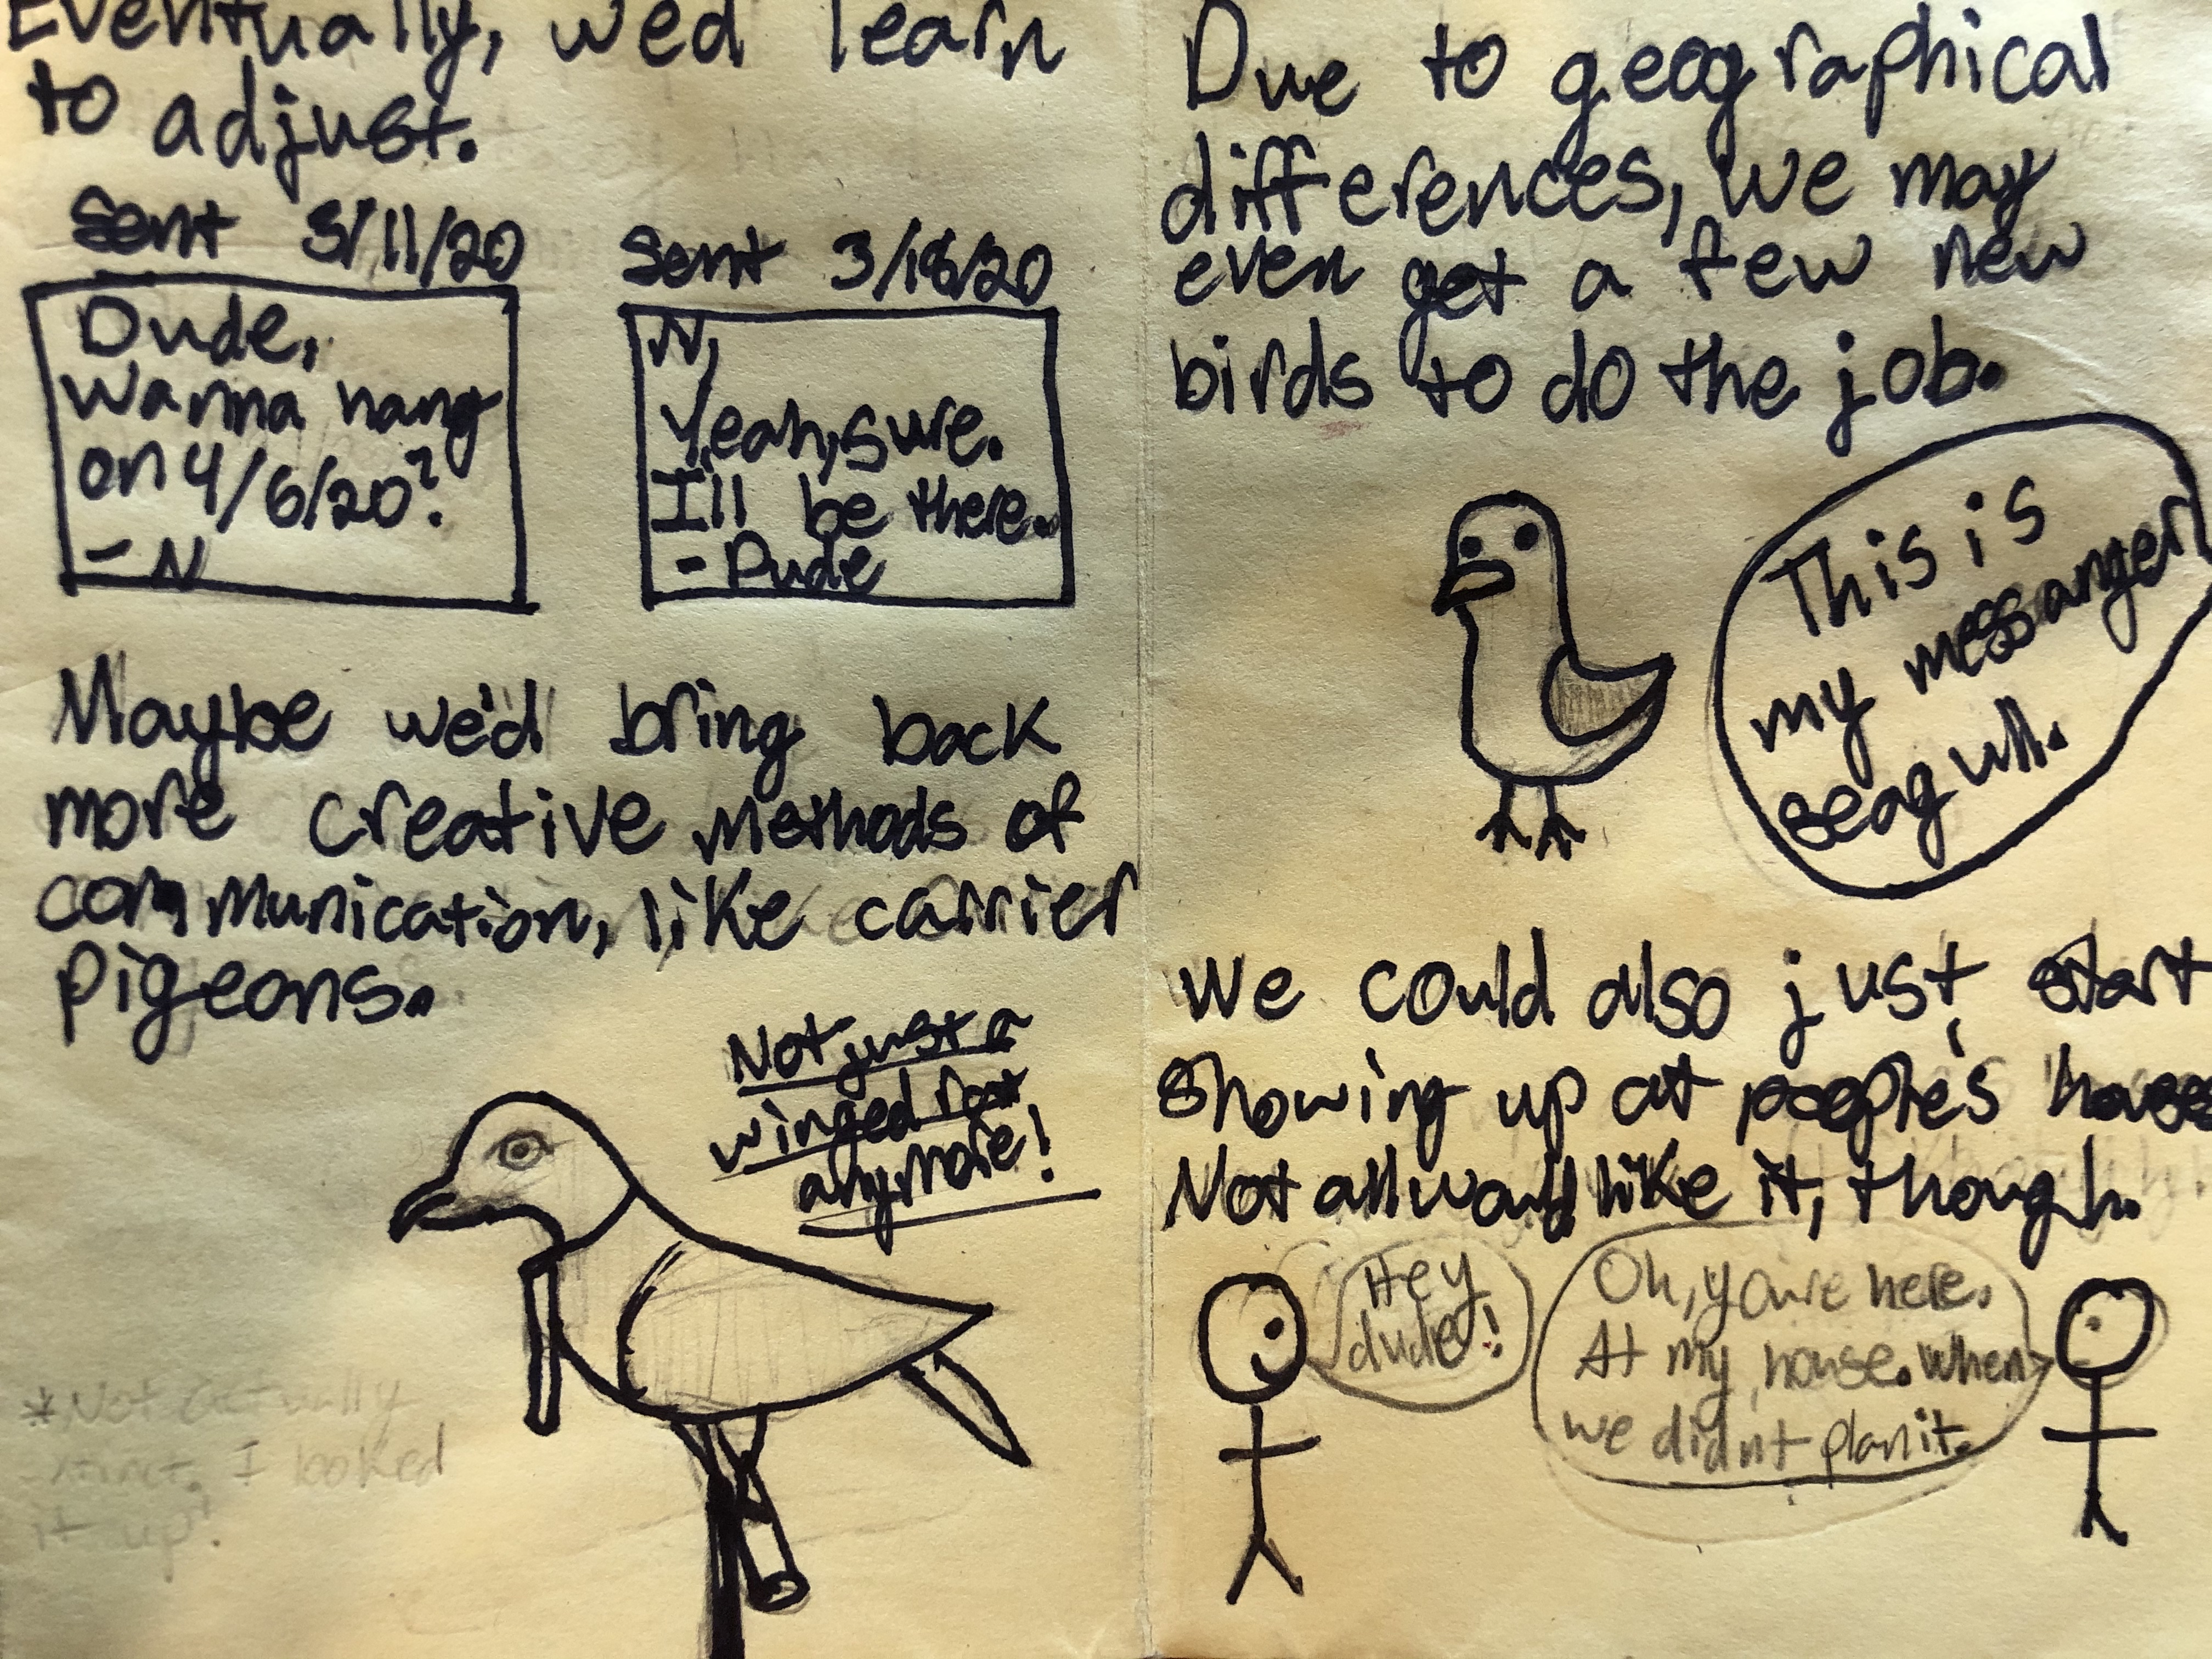 Eventually, we'd learn
to adjust.
Sent 3/11/20
Dude,
Wanna hang
on 4/6/20?
- N
Sent 3/18/20
N,
Yeah, sure.
I'll be there.
- Dude
Maybe we'd bring back
more creative methods of
communication, like carrier
pigeons.
Not just a
winged rat
anymore!
*Not actually
extinct. I looked
it up!
Due to geographical
differences, we may
even get a few new
birds to do the job.
This is
my messanger
seagull.
We could also just start
showing up at people's house
Not all would like it, though.
Hey
dude!
Oh, you're here.
At my house. When
we didn't plan it.